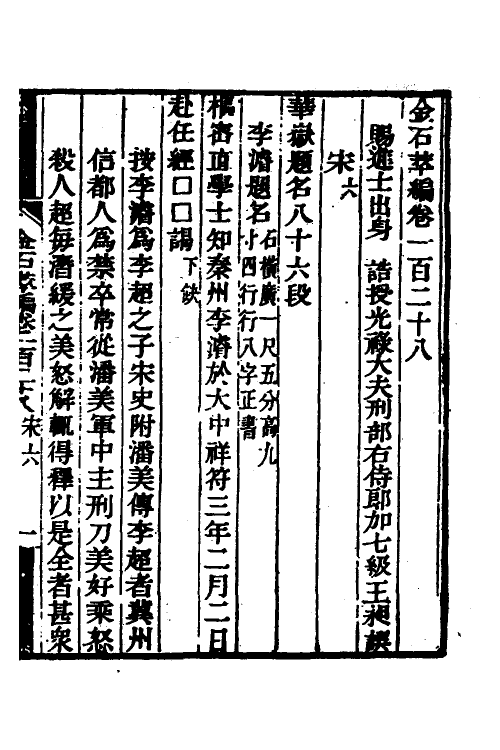 金石萃編卷一百二十八
賜進士出身　誥授光祿大夫刑部右侍郎加七級王昶譔
宋六
華嶽題名八十六段
李濬題名石橫廣一尺五分高九寸四行行八字正書
樞密直學士知秦州李濬於大中祥符三年二月二日
赴任經□□謁下缺
按李濬爲李超之子宋史附潘美傳李超者冀州
信都人爲禁卒常從潘美軍中主刑刀美好乘怒
殺人超每潛緩之美怒解輒得釋以是全者甚衆
金石萃編卷一百二十八宋六　一